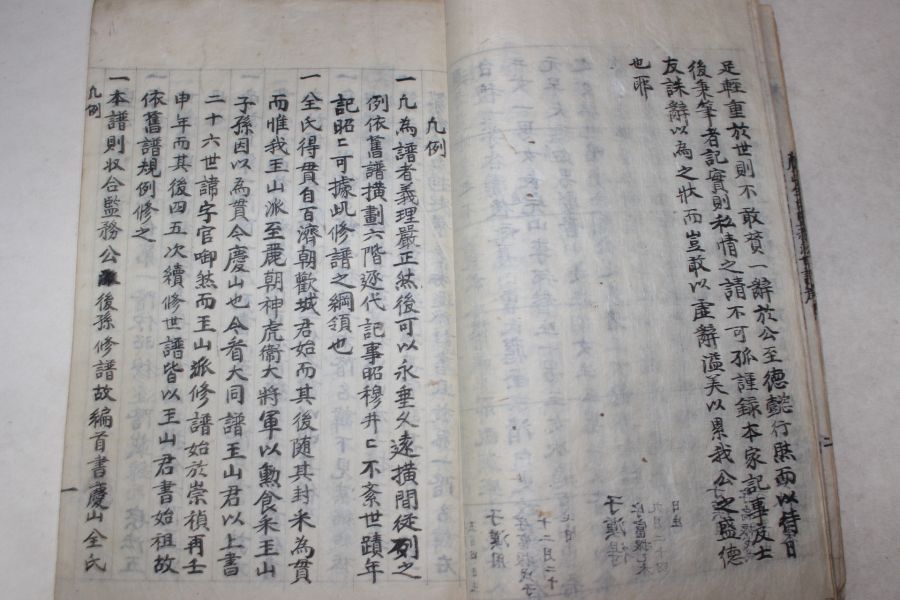 足輕重於世則不敢贊一辭於公至德懿行
後秉筆者記實則私情之請不可孤謹錄本家記事友士
友誄辭以為之狀而豈敢以虛辭溢美以累我公之盛德
也耶
凡例
一凡為譜者義理嚴正然後可以永垂久遠橫間從列之
例依舊譜橫劃六階逐代記事昭穆井〻不紊世蹟年
記昭〻可據此修譜之綱領也
一全氏得貫自百濟朝歡城君始而其後隨其封采為貫
而惟我王山派至麗朝神虎衛大將軍以勳食采王山
子孫因以為貫今慶山也今看大同譜王山君以上書
二十六世諱字官啣然而王山派修譜始於崇禎再壬
申年而其後四五次續修世譜皆以王山君書始祖故
依舊譜規例修之
一本譜則収合監務公後孫修譜故編首書慶山全氏
凡例
一
二